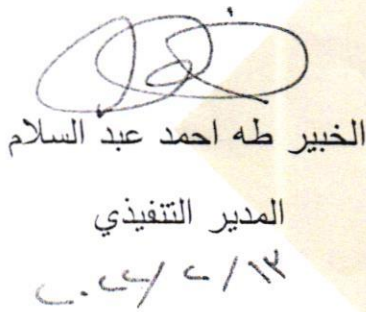 الخبير طه احمد عبد السلام
المدير التنفيذي
١٣/٢/٢٠٢٢